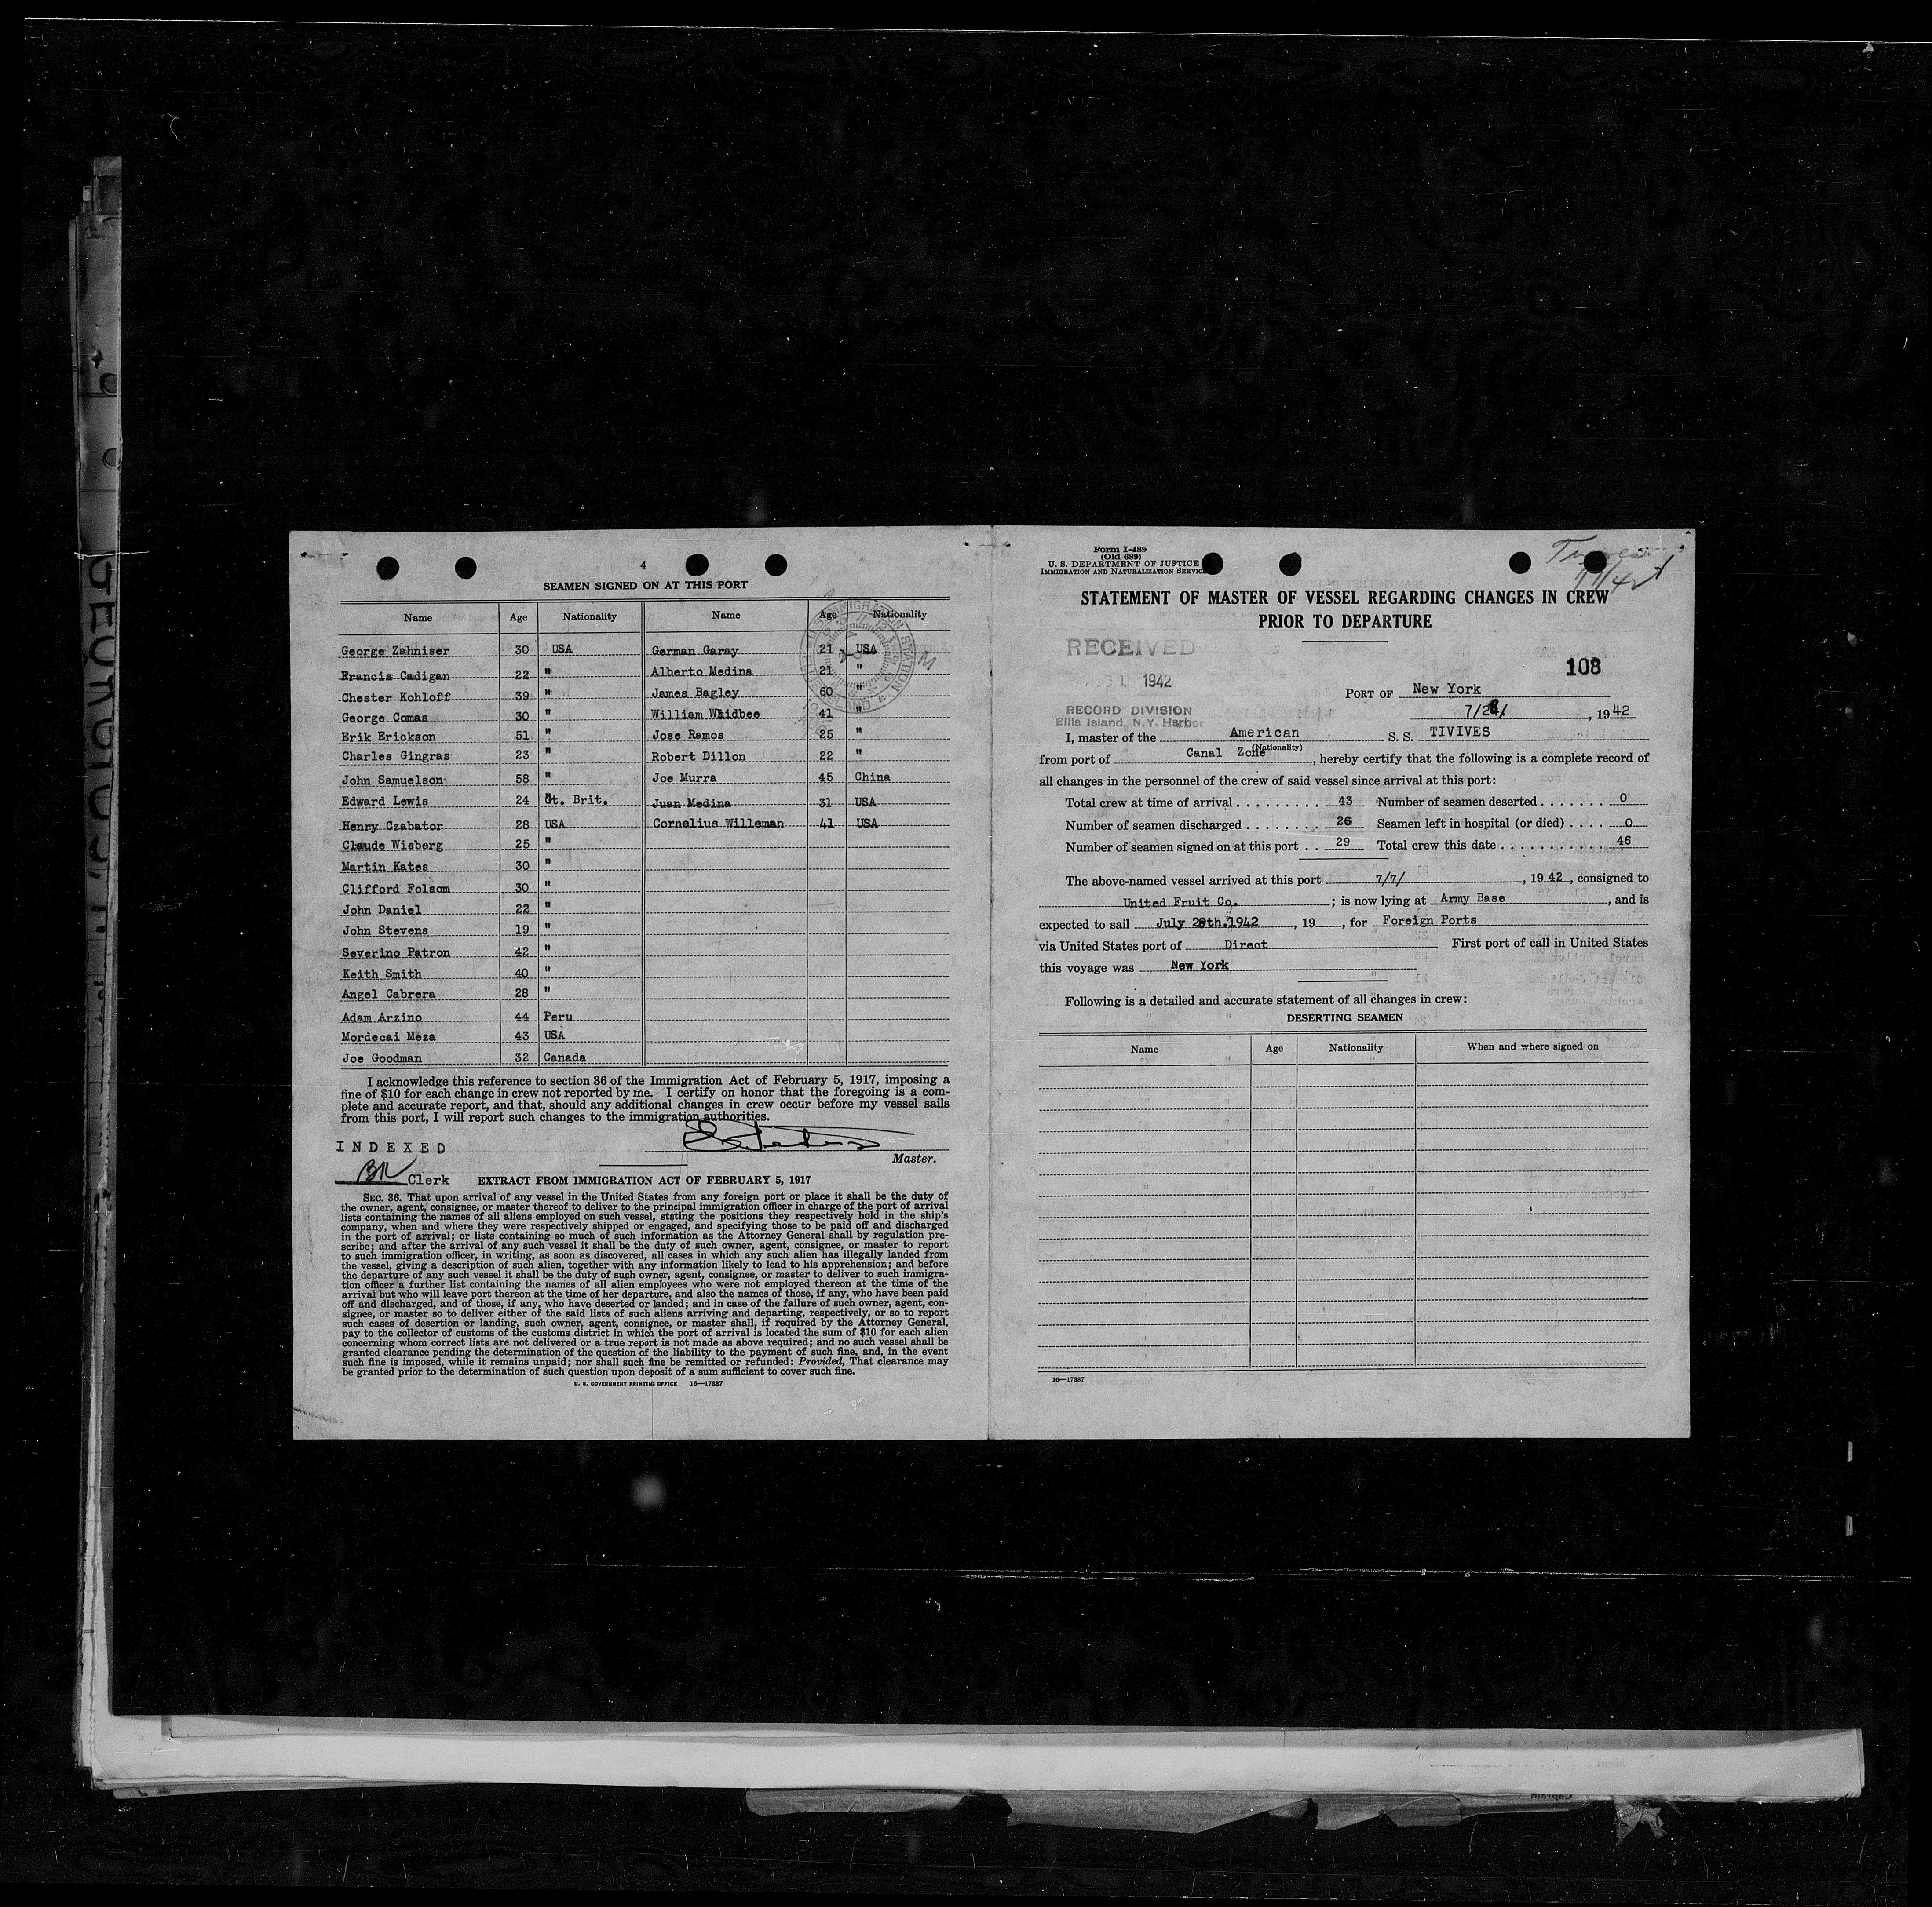 4
SEAMEN SIGNED ON AT THIS PORT
Name Age Nationality Name Age Nationality
George Zahniser 30 USA German Garay 21 USA
Francis Cadigan 22 " Alberto Medina 21 "
Chester Kohloff 39 " James Bagley 60 "
George Comas 30 " William Whidbee 41 "
Erik Erickson 51 " Jose Ramos 25 "
Charles Gingras 23 " Robert Dillon 22 "
John Samuelson 58 " Joe Murra 45 China
Edward Lewis 24 Gt. Brit. Juan Medina 31 USA
Henry Czabator 28 USA Cornelius Willeman 41 USA
Claude Wisberg 25 "
Martin Kates 30 "
Clifford Folsom 30 "
John Daniel 22 "
John Stevens 19 "
Severino Patron 42 "
Keith Smith 40 "
Angel Cabrera 28 "
Adam Arzino 44 Peru
Mordecai Meza 43 USA
Joe Goodman 32 Canada
I acknowledge this reference to section 36 of the Immigration Act of February 5, 1917, imposing a
fine of $10 for each change in crew not reported by me. I certify on honor that the foregoing is a com-
plete and accurate report, and that, should any additional changes in crew occur before my vessel sails
from this port, I will report such changes to the immigration authorities.
INDEXED
Master.
BR Clerk
EXTRACT FROM IMMIGRATION ACT OF FEBRUARY 5, 1917
SEC. 36. That upon arrival of any vessel in the United States from any foreign port or place it shall be the duty of
the owner, agent, consignee, or master thereof to deliver to the principal immigration officer in charge of the port of arrival
lists containing the names of all aliens employed on such vessel, stating the positions they respectively hold in the ship's
company, when and where they were respectively shipped or engaged, and specifying those to be paid off and discharged
in the port of arrival; or lists containing so much of such information as the Attorney General shall by regulation pre-
scribe; and after the arrival of any such vessel it shall be the duty of such owner, agent, consignee, or master to report
to such immigration officer, in writing, as soon as discovered, all cases in which any such alien has illegally landed from
the vessel, giving a description of such alien, together with any information likely to lead to his apprehension; and before
the departure of any such vessel it shall be the duty of such owner, agent, consignee, or master to deliver to such immigra-
tion officer a further list containing the names of all alien employees who were not employed thereon at the time of the
arrival but who will leave port thereon at the time of her departure, and also the names of those, if any, who have been paid
off and discharged, and of those, if any, who have deserted or landed; and in case of the failure of such owner, agent, con-
signee, or master so to deliver either of the said lists of such aliens arriving and departing, respectively, or so to report
such cases of desertion or landing, such owner, agent, consignee, or master shall, if required by the Attorney General,
pay to the collector of customs of the customs district in which the port of arrival is located the sum of $10 for each alien
concerning whom correct lists are not delivered or a true report is not made as above required; and no such vessel shall be
granted clearance pending the determination of the question of the liability to the payment of such fine, and, in the event
such fine is imposed, while it remains unpaid; nor shall such fine be remitted or refunded: Provided, That clearance may
be granted prior to the determination of such question upon deposit of a sum sufficient to cover such fine.
U. S. GOVERNMENT PRINTING OFFICE 16—17387
Form I-489
(Old 689)
U. S. DEPARTMENT OF JUSTICE
IMMIGRATION AND NATURALIZATION SERVICE
STATEMENT OF MASTER OF VESSEL REGARDING CHANGES IN CREW
PRIOR TO DEPARTURE
RECEIVED
1942
RECORD DIVISION
Ellis Island, N.Y. Harbor
108
PORT OF New York
, 19 42
I, master of the American S. S. TIVIVES
(Nationality)
from port of Canal Zone, hereby certify that the following is a complete record of
all changes in the personnel of the crew of said vessel since arrival at this port:
Total crew at time of arrival . . . . . . . . . 43 Number of seamen deserted . . . . . . . 0
Number of seamen discharged . . . . . . . . 26 Seamen left in hospital (or died) . . . . 0
Number of seamen signed on at this port . . 29 Total crew this date . . . . . . . . . . . . 46
The above-named vessel arrived at this port 7/7/, 19 42, consigned to
United Fruit Co. ; is now lying at Army Base, and is
expected to sail July 28th.1942, 19 , for Foreign Ports
via United States port of Direct First port of call in United States
this voyage was New York
Following is a detailed and accurate statement of all changes in crew:
DESERTING SEAMEN
Name Age Nationality When and where signed on
16—17387